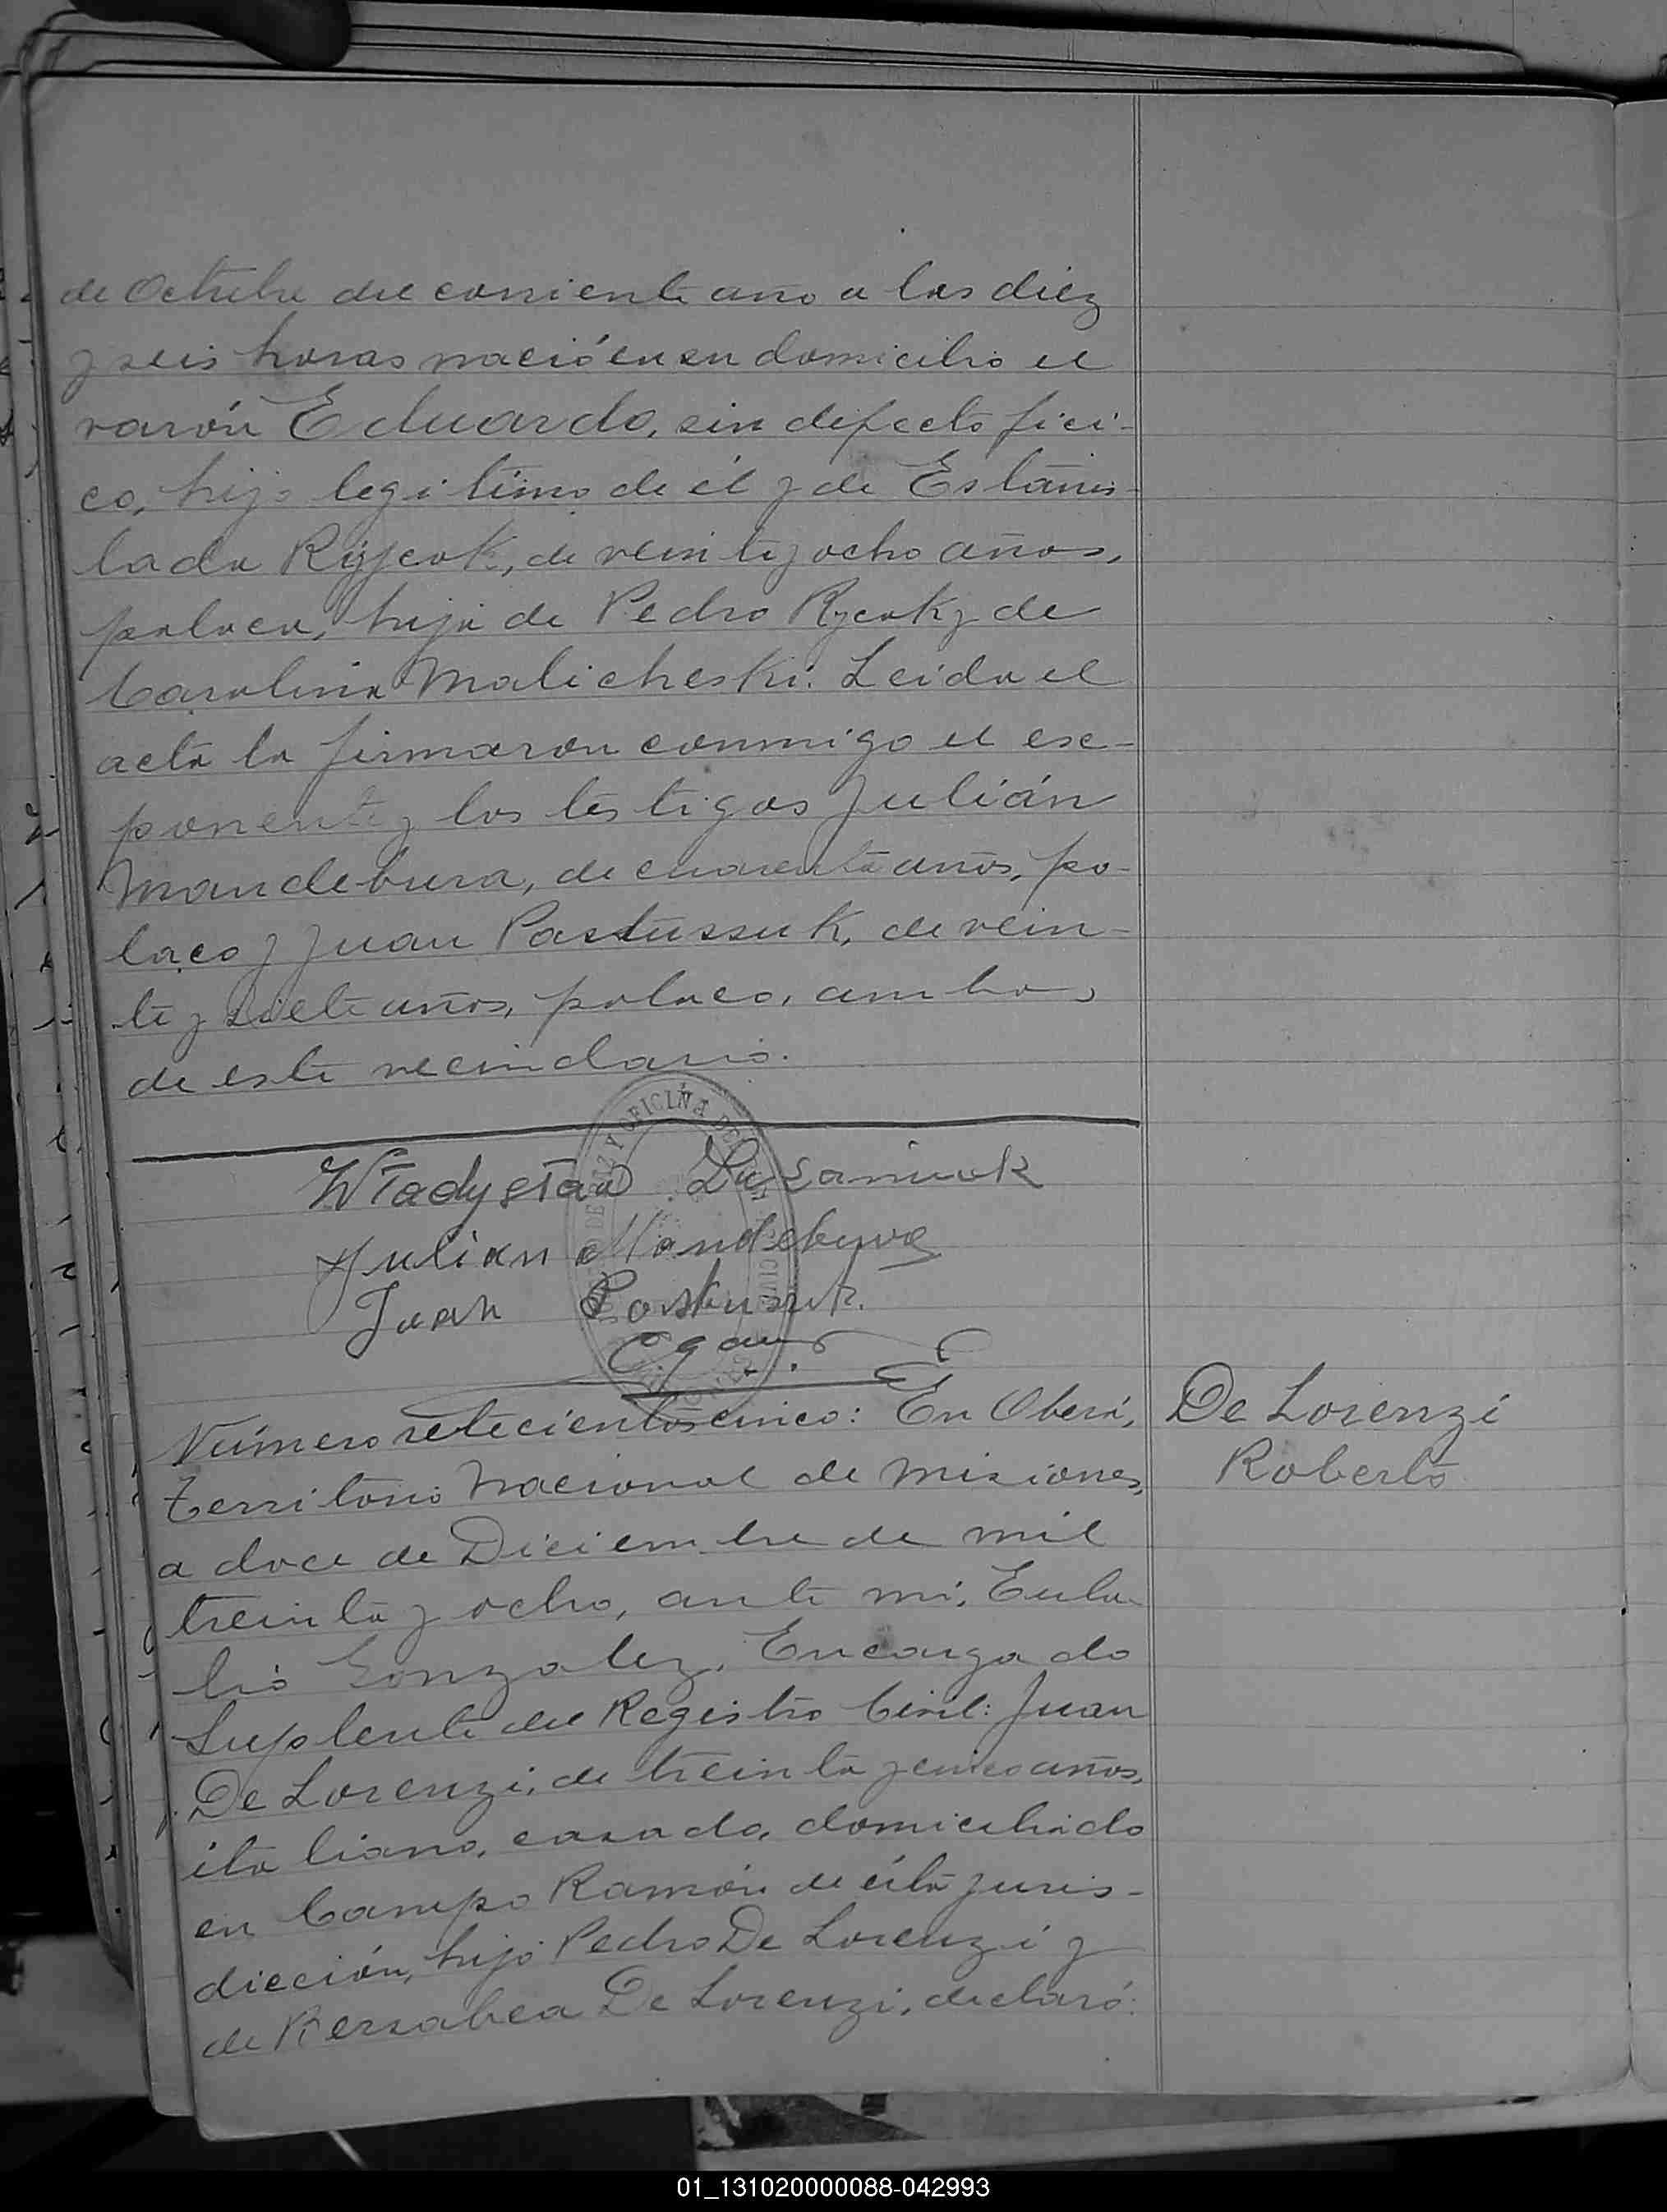 de Octubre del corriente año a las diez
y seis horas nació en su domicilio el
varón Eduardo, sin defecto fici-
co, hijo legitimo de él y de Estanis-
lada Ryjcok, de veintey ocho años,
polaca, hija de Pedro Rycok y de
Carolina Malicheski. Leida el
acta la firmaron conmigo el esc-
ponente y los testigos Julián
Mandebura, de cuarenta años, po-
laco y Juan Pastussuk, de vein-
te y siete años, polaco, ambos
de este vecindario.
OFICINA DE
Władysław Lusaniuk
Julian Mandebura
Juan Pastussuk.
Número setecientos cinco: En Oberá,
De Lorenzi
territorio Nacional de Misiones,
Roberto
a doce de Diciembre de mil
treinta y ocho, ante mi, Eula-
lio Gonzalez, Encargado
Suplente del Registro Civil: Juan
De Lorenzi, de treinta y cinco años,
italiano, casado, domiciliado
en Campo Ramón de ésta juris-
dicción, hijo Pedro De Lorenzi y
de Bersabea De Lorenzi, declaró:
01_131020000088-042993